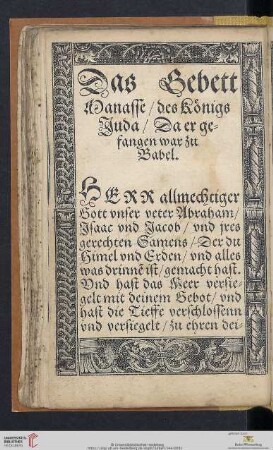 Das Gebett
Manasse / des Königs
Juda / Da er ge-
fangen war zu
Babel.
HERR allmechtiger
Gott vnser veter Abraham /
Isaac vnd Jacob / vnd jres
gerechten Samens / Der du
Himel vnd Erden / vnd alles
was drinne ist / gemacht hast.
Vnd hast das Meer versie-
gelt mit deinem Gebot / vnd
hast die Tieffe verschlossenn
vnd versiegelt / zu ehren dei-
UNIVERSITÄTS-
BIBLIOTHEK
HEIDELBERG
© Universitätsbibliothek Heidelberg